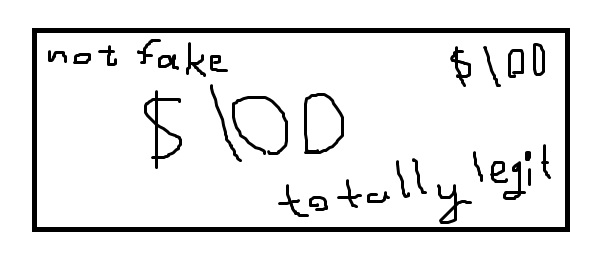 not fake
$100
$100
totally legit